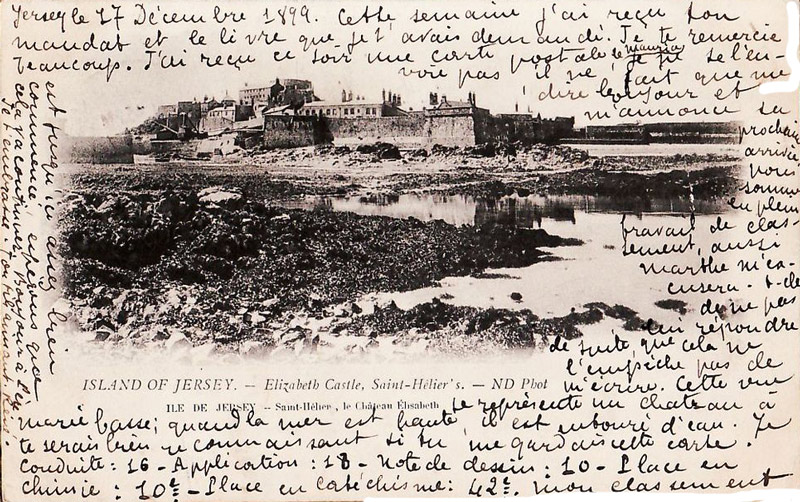 Jersey le 17 Décembre 1899. Cette semaine j'ai reçu ton
mandat et le livre que je t'avais demandé. Je te remercie
beaucoup. J'ai reçu ce soir une carte postale de Maurice
je ne la l'en-
voie pas, il ne fait que me
dire bonjour et
m'annonce sa
prochaine
arrivée
nous
sommes
en plein
travail de clas-
sement, aussi
Marthe m'ex-
cusera-t-elle
de ne pas
lui répondre
de suite, que cela ne
l'empêche pas de
m'écrire. Cette vue
ISLAND OF JERSEY. — Elizabeth Castle, Saint-Hélier's. — ND Phot
ILE DE JERSEY — Saint-Hélier, le Château Élisabeth
te représente un chateau à
marée basse; quand la mer est haute, il est entouré d'eau. Je
te serais bien reconnaissant si tu me gardais cette carte.
Conduite: 16 - Application: 18 - Note de dessin: 10 - Place en
chimie: 10e - Place en catéchisme: 42e. mon classement
est jusqu'ici assez bien
commencé, espérons que
cela va continuer. Bonjour à
Je t'embrasse. Ton